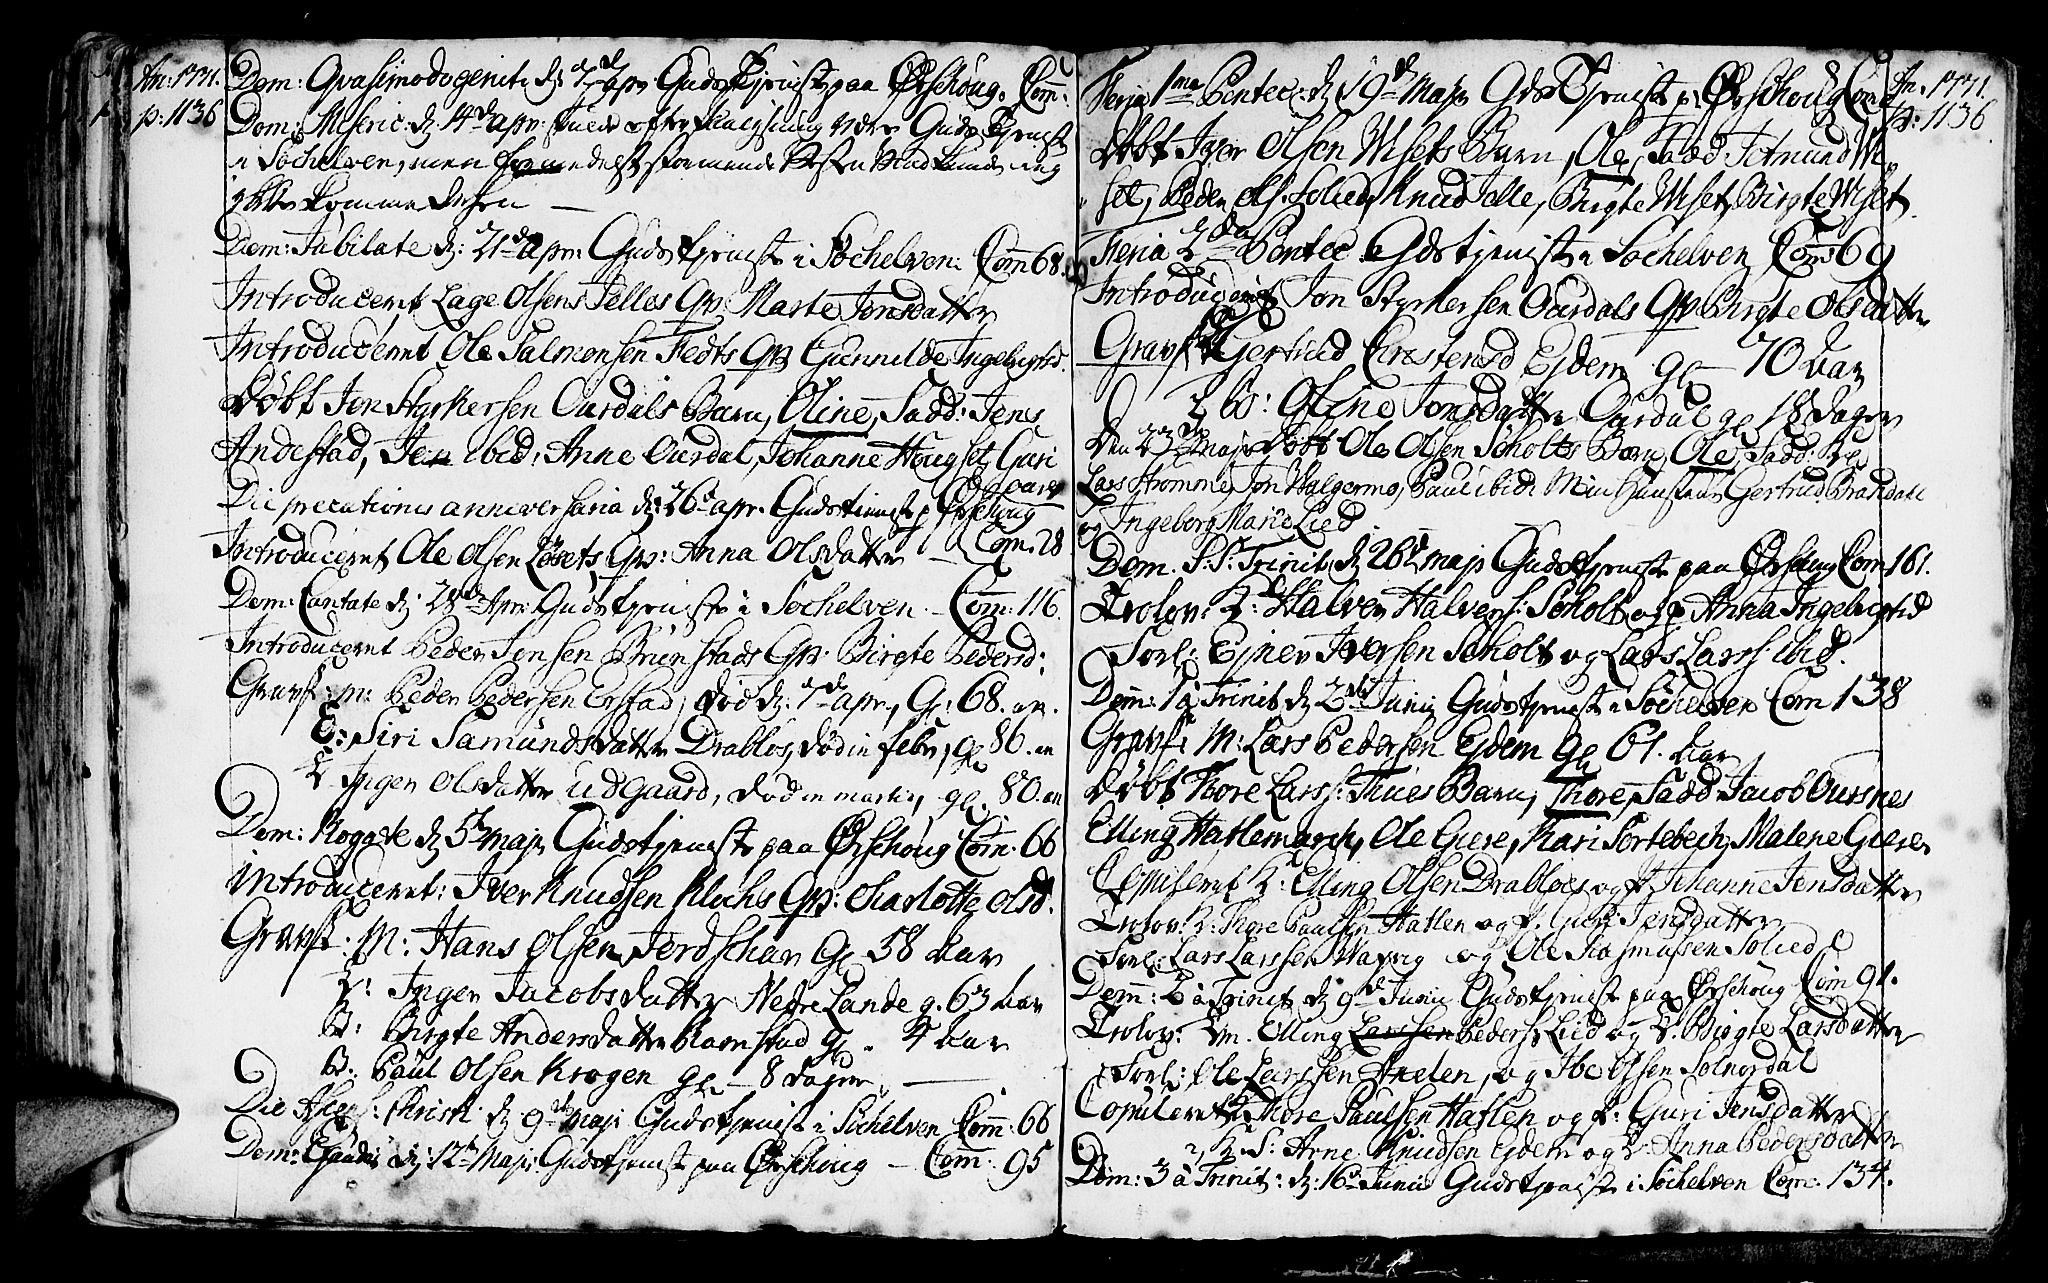 An: 1771.
p: 1136
Dom: Qvasimodogeniti d: 7de apr: Gudstjeniste paa Ørschoug. Com:
Dom: Miseric: d: 14de apr: skulle efter være Guds tjenist
i Söchelven, men formedelst stormende kunde ieg
ikke komme
Dom: Jubilate d: 21de apr: Gudstjeniste i Söchelven: Com 68.
Introduceret Lage Olsens Telles Qv: Marte Jonsdatter
Introduceret Ole Salmonsen Tedts Qv: Gunnilde Ingebrigtsd.
Döbt Jon Styrkersen Aurdals Barn, Oline, Fadd: Jens
Andestad, Jen ibid: Anne Aurdal, Johanne Hougset, Guri
Die precationis anniversaria d: 26de apr. Gudstienist p Ørschoug
Introduceret Ole Olsen Løsets Qv: Anna Olsdatter — Com: 28
Dom: Cantate d: 28de Apr: Gudstjeniste i Söchelven — Com: 116.
Introduceret Peder Jensen Brunstads Qv: Birgte Pedersd:
Gravf: M: Peder Pedersen Erstad, död d: 7de apr., G: 68. aar.
E: Siri Samundsdatter Drablos, död in febr, gl 86. aar
K Inger Olsdatter Udgaard, död in martii, gl. 80. aar
Dom: Rogate d 5te maji Gudstjeniste paa Ørschoug Com: 66
introduceret: Iver Knudsen Klochs Qv: Charlotte Olsd.
Gravf: M: Hans Olsen Jordschar Gl 58 Aar
K: Inger Jacobsdatter Nedre Lande g. 63 Aar
B: Birgte Andersdatter Ramstad gl - 4 Aar
B. Paul Olsen Krogen gl — 8 dager. —
Die Ascens: Christi d 9de maji Gudstjenist i Söchelven Com: 66
Dom: Exaudi d: 12te Maji Gudstjenist paa Ørschoug — Com: 95
An: 1771.
p: 1136
Feria 1ma Pentec: d 19de Maji Gds Tjenist p: Ørschoug Com:
Döbt Iver Olsen Wisets Barn, Ole, Fadd Jetmund Wi-
set, Peder Ols: Solied, Knud Telle, Birgte Wiset, Birgte Wiset.
Feria 2da Pentec: Gdstjenist i Söchelven Com: 69
Introduceret Jon Styrkersen Aurdals Qv: Birgte Olsdatter
Gravf: Gertrud Crestensd Ejdem gl — 70 Aar
2 60: Oline Jonsdatter Aurdal gl 18 dager
Den 23de Maji döbt Ole Olsen Scholts Barn, Ole, Fadd: Ved
Lars Stromme, Jon Walgermo, Paul ibid: Min Hustru Gertrud Brandal
og Ingeborg Marie Lied
Dom. S.S. Trinit: d 26de maji Gudstjeniste paa Ørschoug Com 161.
Trolov: K: Halver Halvers: Scholt og p Anna Ingebrigtsd
Forl: Ejner Iversen Scholt og Lars Larss: ibid.
Dom: 1 a Trinit: d 2de Junii Gudstjenist i Söchelven Com 138
Gravf: M: Lars Pedersen Ejdem gl 61. Aar
Döbt Thore Larss: Tues Barn, Thore, Fadd Jacob Aursnes
Elling Hatlemarch, Ole Giere, Kari Sortebech, Malene Giere
Copuleret K: Elling Olsen Drablos og p. Johanne Jensdatter
Trolov: K: Thore Paulsen Hatlen og p. Guri Jensdatter
Forl: Lars Larsen Warvig og Ole Rasmusen Solied
Dom: 2 a Trinit: d 9de Junii Gudstjenist paa Ørschoug Com 91.
Trolov: Km. Elling Larssen Peders: Lied og K: Birgte Larsdatter
Forl: Ole Larsen Andem, og Ibe Olsen Solnørdal
Copuleret K Thore Paulsen Hatlen og p: Guri Jensdatter
2, K. S: Arne Knudsen Ejdem og K: Anna Pedersdatter
Dom: 3 a Trinit: d: 16de Junii Gudstjenist i Söchelven Com: 134.